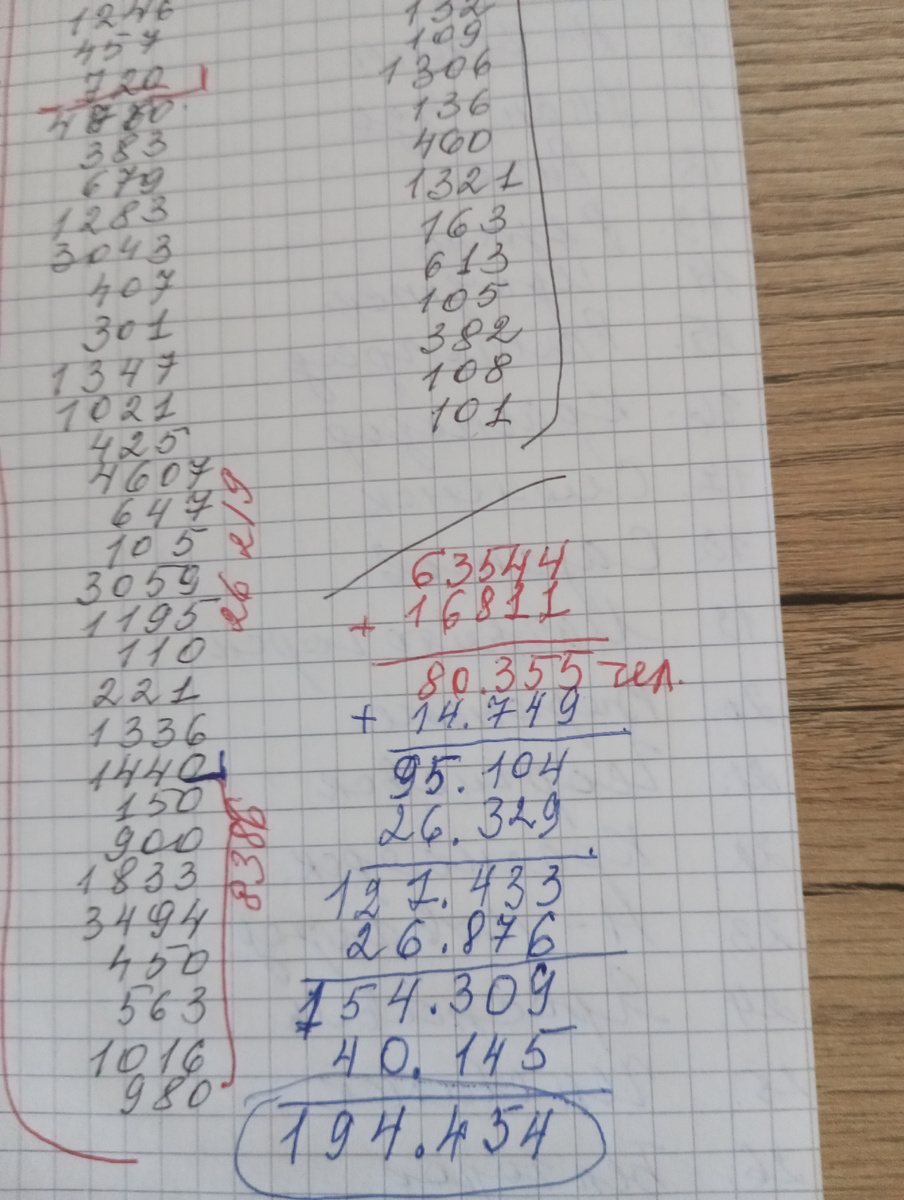 1246
457
720
383
679
1283
3043
407
301
1347
1021
425
4607
647
105
3059
1195
110
221
1336
1440
150
900
1833
3494
450
563
1016
980
26 219
8386
132
109
1306
136
460
1321
163
613
105
382
108
101
63544
+ 16811
80.355 чел.
+ 14.749
95.104
26.329
121.433
26.876
154.309
40.145
194.454